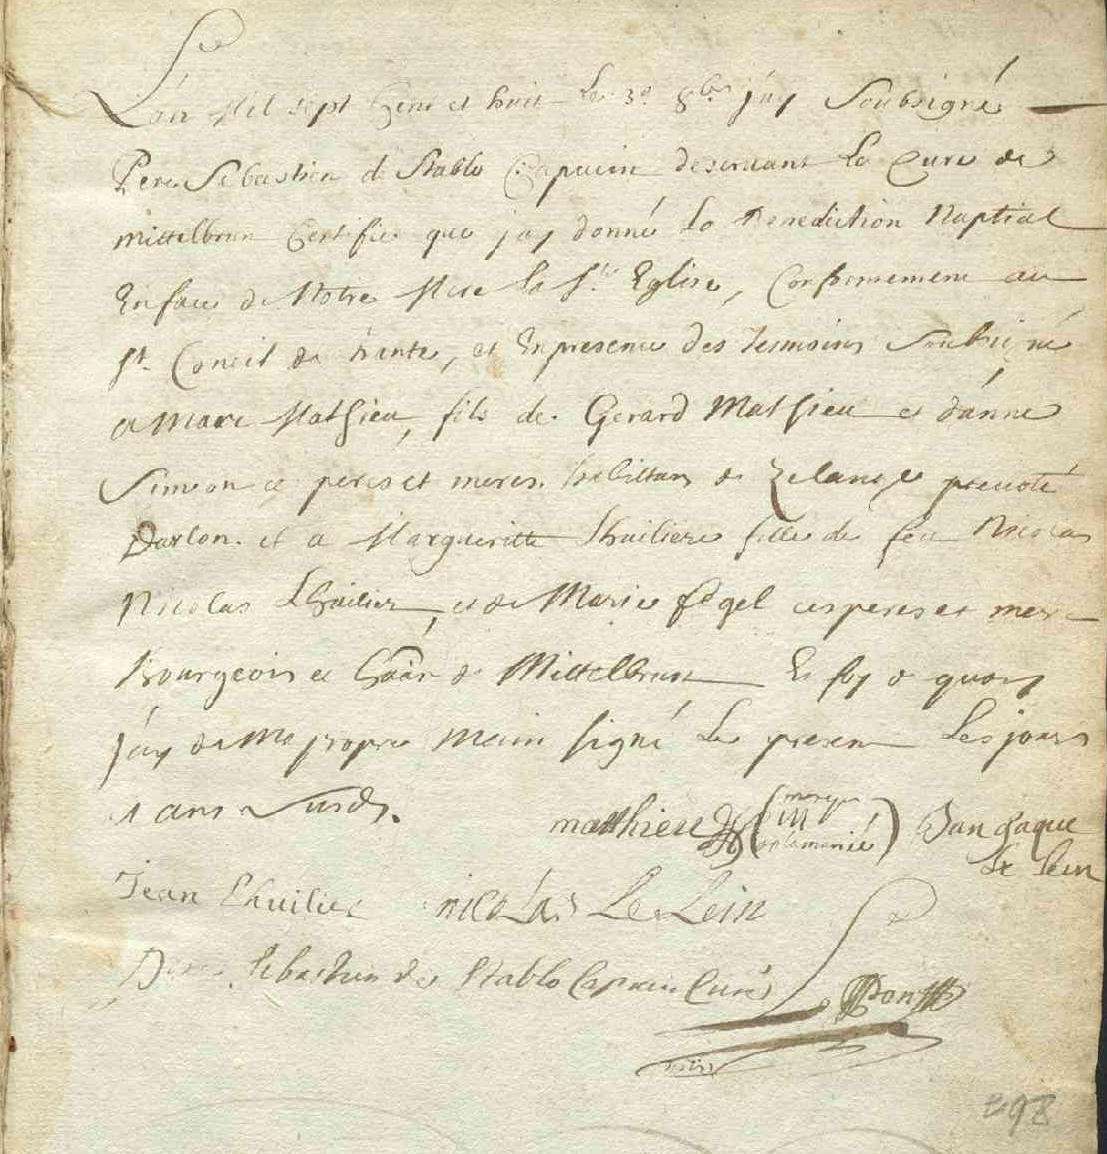 L'an Mil sept Cent et huit Le 3e 8bre j'ay Soubsigné
Pere Sebastien de Stablo Capucin deservant la Cure de
mittelbrun Certifie que j'ay donné la Benediction Naptial
En face de Notre Mere la Ste Eglise, Conformement au
St. Concil de trente, et En presence des tesmoins Soubsigné
a Marc Mathieu, fils de Gerard Mathieu et d'anne
Simeon ces peres et meres. habittans de Zelange prevoté
Darlon. et a Margueritte Lhuiliere fille de feu Nicolas
Nicolas Lhuilier, et de Marie fegel ces peres et mere
Bourgeois et de Mittelbrun En foy de quoy
j'ay de Ma propre Main signé Le present Les jours
et ans Susds.
matthieu (marque de lamarié) Jan Jaque
le lein
Jean Lhuilier nicolas Le Lein
Pere Sebastien de Stablo Capucin Curé Pont
98